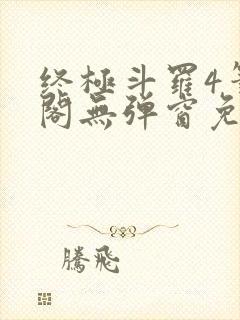 终極斗羅4筆
閣無彈窗免
騰飛